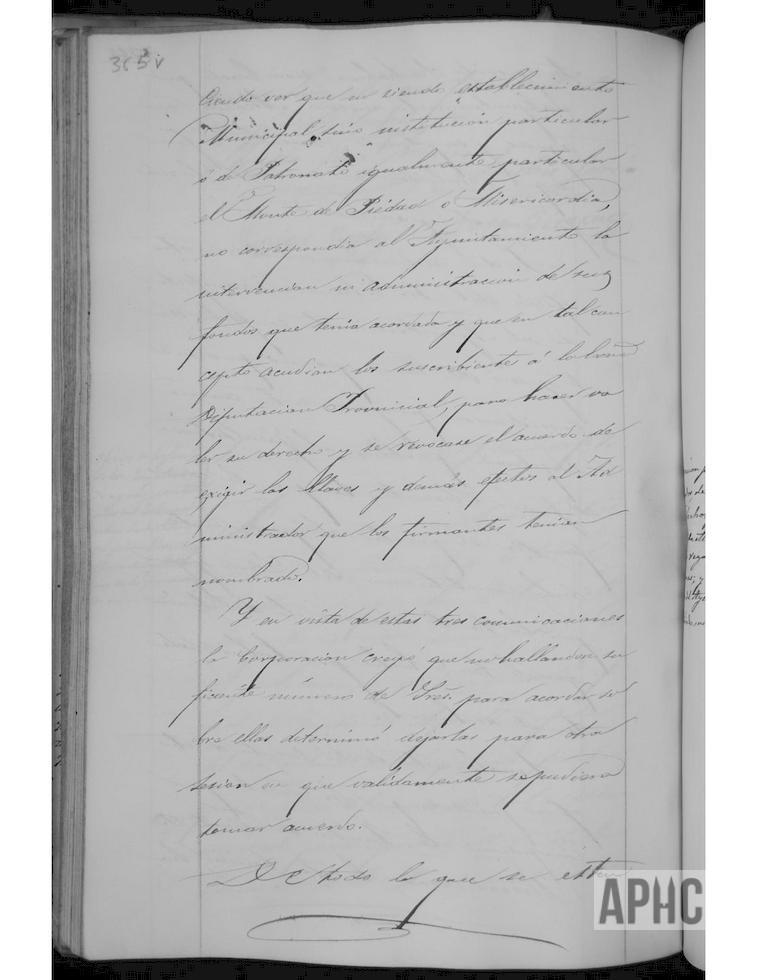 365v
ciendo ver que no siendo establecimiento
Municipal, sino institución particular
ó de Patronato igualmente particular
el Monte de Piedad ó Misericordia,
no correspondia al Ayuntamiento la
intervencion ni administracion de sus
fondos que tenia acordada y que en tal con
cepto acudian los suscribientes á la
Diputacion Provincial, para hacer va
ler su derecho y se revocase el acuerdo de
exigir las llaves y demás efectos al Ad
ministrador que los firmantes tenian
nombrado.
Y en vista de estas tres comunicaciones
la Corporacion creyó que no hallandose su
ficiente número de Sres. para acordar so
bre ellas determinó dejarlas para otra
sesion en que validamente se pudiera
tomar acuerdo.
De todo lo que se esten
APHC